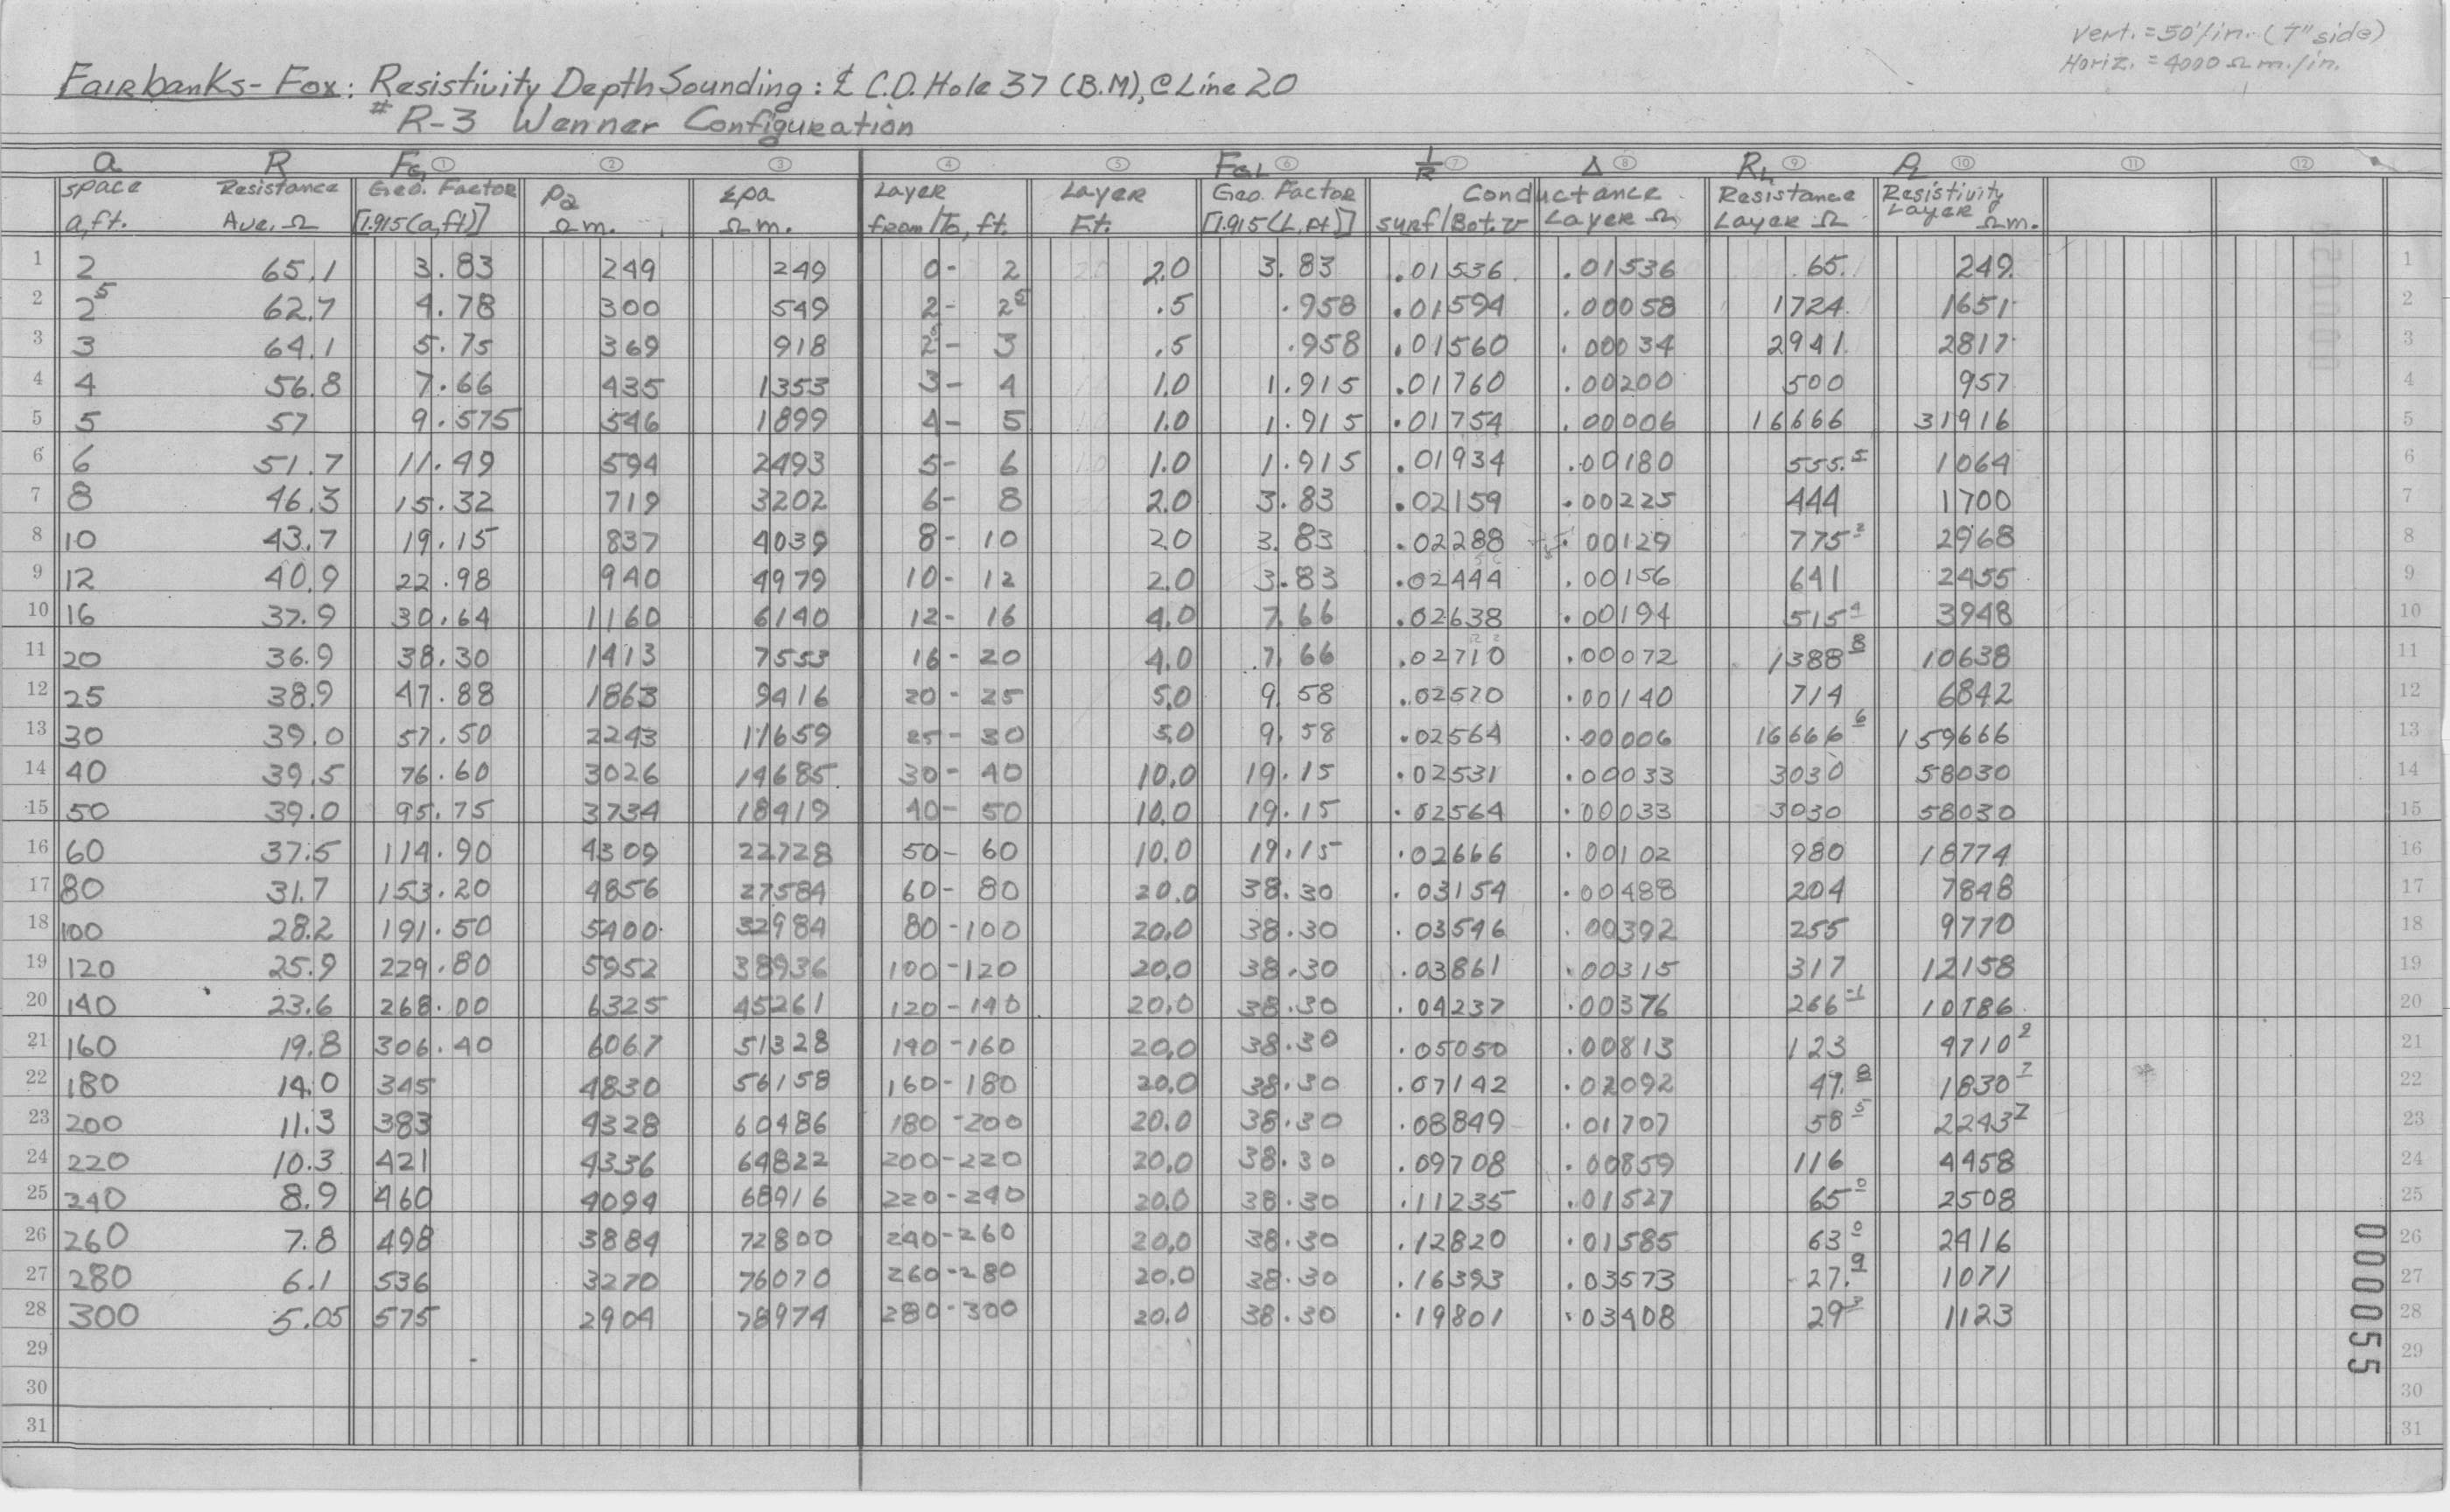 Vert. = 50'/in. (7" side)
Horiz. = 4000 Ω m./in.
Fairbanks-Fox: Resistivity Depth Sounding: ₵ C.D. Hole 37 (B.M), @ Line 20
#R-3 Wenner Configuration
a R FG ① ② ③ ④ ⑤ FGL ⑥ 1/R ⑦ Δ ⑧ RL ⑨ ⑩ ⑪ ⑫
space Resistance Geo. Factor ρa Σρa Layer Layer Geo. Factor Conductance Resistance Resistivity
a, ft. Ave. Ω [1.915(a,ft)] Ω m. Ω m. from/To, ft. Ft. [1.915(L,ft)] surf/Bot. ʊ Layer Ω Layer Ω Layer Ω m.
1 2 65.1 3.83 249 249 0- 2 2.0 3.83 .01536 .01536 65. 249. 1
2 2⁵ 62.7 4.78 300 549 2- 2⁵ .5 .958 .01594 .00058 1724. 1651 2
3 3 64.1 5.75 369 918 2⁵- 3 .5 .958 .01560 .00034 2941. 2817 3
4 4 56.8 7.66 435 1353 3- 4 1.0 1.915 .01760 .00200 500 957 4
5 5 57 9.575 546 1899 4- 5 1.0 1.915 .01754 .00006 16666 31916 5
6 6 51.7 11.49 594 2493 5- 6 1.0 1.915 .01934 .00180 555.5 1064 6
7 8 46.3 15.32 719 3202 6- 8 2.0 3.83 .02159 .00225 444 1700 7
8 10 43.7 19.15 837 4039 8- 10 20 3.83 .02288 .00129 775² 2968 8
9 12 40.9 22.98 940 4979 10- 12 2.0 3.83 .02444 .00156 641 2455 9
10 16 37.9 30.64 1160 6140 12- 16 4.0 7.66 .02638 .00194 515⁴ 3948 10
11 20 36.9 38.30 1413 7553 16- 20 4.0 7.66 .02710 .00072 1388⁸ 10638 11
12 25 38.9 47.88 1863 9416 20- 25 5.0 9.58 .02570 .00140 714 6842 12
13 30 39.0 57.50 2243 11659 25- 30 5.0 9.58 .02564 .00006 16666⁶ 159666 13
14 40 39.5 76.60 3026 14685 30- 40 10.0 19.15 .02531 .00033 3030 58030 14
15 50 39.0 95.75 3734 18419 40- 50 10.0 19.15 .02564 .00033 3030 58030 15
16 60 37.5 114.90 4309 22728 50- 60 10.0 19.15 .02666 .00102 980 18774 16
17 80 31.7 153.20 4856 27584 60- 80 20.0 38.30 .03154 .00488 204 7848 17
18 100 28.2 191.50 5400 32984 80-100 20.0 38.30 .03546 .00392 255 9770 18
19 120 25.9 229.80 5952 38936 100-120 20.0 38.30 .03861 .00315 317 12158 19
20 140 23.6 268.00 6325 45261 120-140 20.0 38.30 .04237 .00376 266 10186 20
21 160 19.8 306.40 6067 51328 140-160 20.0 38.30 .05050 .00813 123 4710⁹ 21
22 180 14.0 345 4830 56158 160-180 20.0 38.30 .07142 .02092 47.8 1830⁷ 22
23 200 11.3 383 4328 60486 180-200 20.0 38.30 .08849 .01707 58⁵ 2243⁷ 23
24 220 10.3 421 4336 64822 200-220 20.0 38.30 .09708 .00859 116 4458 24
25 240 8.9 460 4094 68916 220-240 20.0 38.30 .11235 .01527 65⁰ 2508 25
26 260 7.8 498 3884 72800 240-260 20.0 38.30 .12820 .01585 63⁰ 2416 26
27 280 6.1 536 3270 76070 260-280 20.0 38.30 .16393 .03573 27.9 1071 27
28 300 5.05 575 2904 78974 280-300 20.0 38.30 .19801 .03408 29³ 1123 28
29 29
30 30
31 31
000055